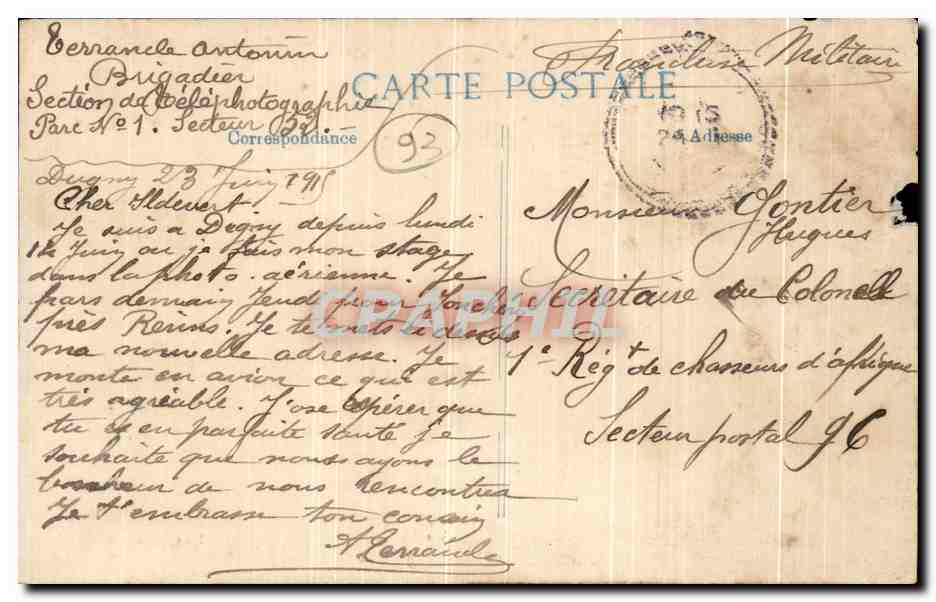 Terrancle Antonin
Brigadier
Section de Téléphotographie
Parc No 1. Secteur 33.
Franchise Militaire
CARTE POSTALE
Correspondance
Adresse
93
15
24
Dugny 23 Juin 1915
Cher Ildevert
Je suis a Dugny depuis lundi
14 Juin ou je fais mon stage
dans la photo. aérienne. Je
pars demain Jeudi pour Jonchery
près Reims. Je te mets ci dessus
ma nouvelle adresse. Je
monte en avion ce qui est
très agréable. J'ose espérer que
tu es en parfaite santé je
souhaite que nous ayons le
bonheur de nous rencontrer
Je t'embrasse ton cousin
A Terrancle
Monsieur Gontier
Hugues
Secrétaire du Colonel
1e Régt de chasseurs d'afrique
Secteur postal 96
CPAPHIL